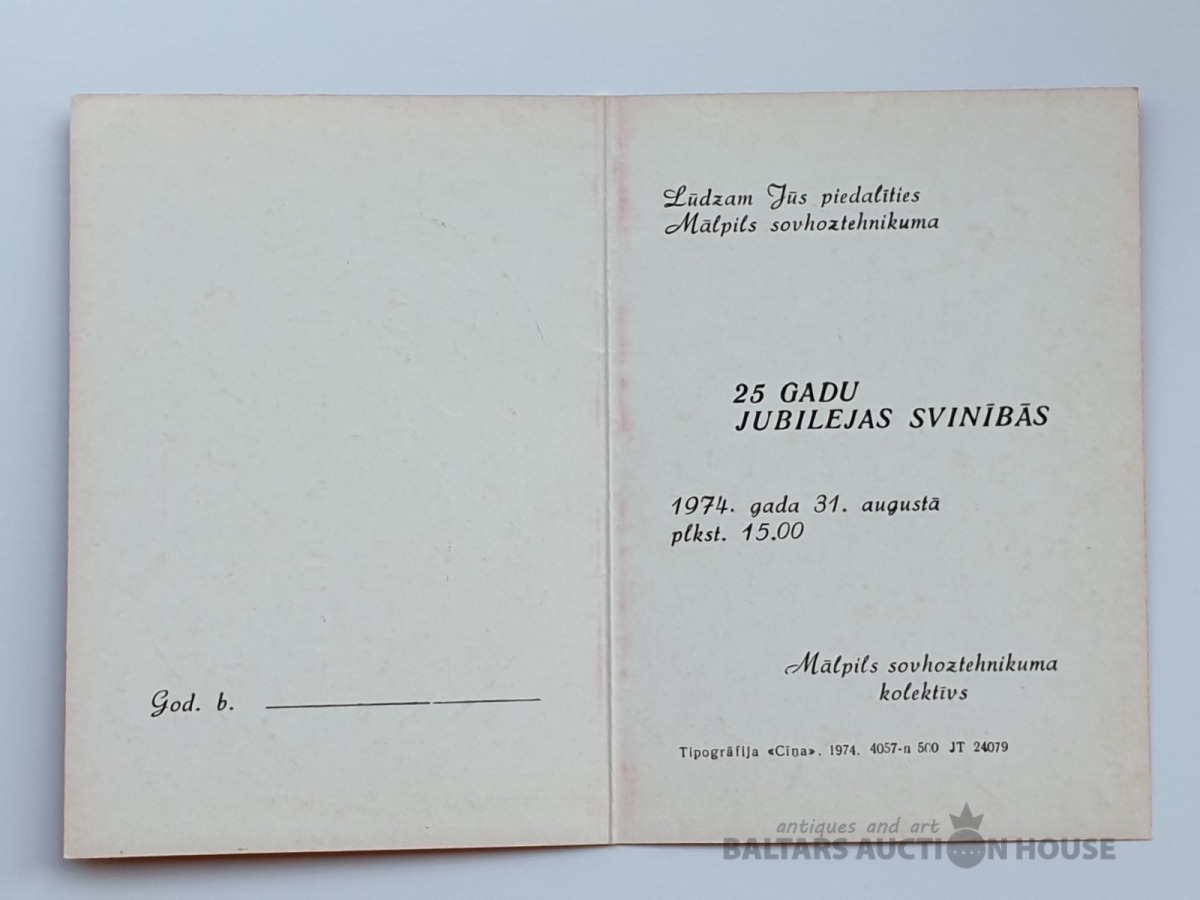 God. b.
Lūdzam Jūs piedalīties
Mālpils sovhoztehnikuma
25 GADU
JUBILEJAS SVINĪBĀS
1974. gada 31. augustā
plkst. 15.00
Mālpils sovhoztehnikuma
kolektīvs
Tipogrāfija «Cīņa». 1974. 4057-n 500 JT 24079
antiques and art
BALTARS AUCTION HOUSE